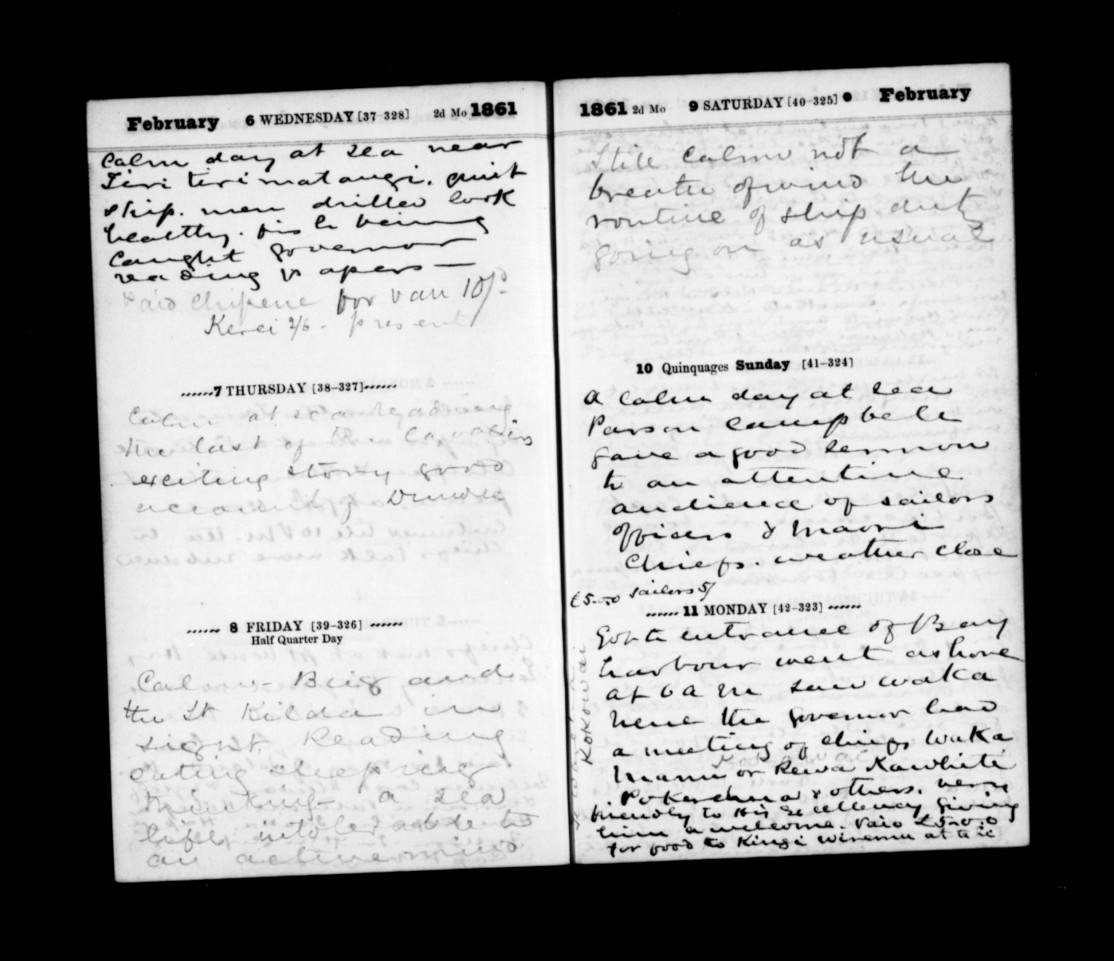 February 6 WEDNESDAY [37-328] 2d Mo 1861
Calm day at sea near
Tiri tiri matangi. quiet
ship. men drilled look
healthy. fish being
caught governor
reading papers —
Paid Chipene for van 10/.
Kerei 2/6. present
......7 THURSDAY [38-327]......
Calm at sea reading
the last of the
exciting story good
according
...... 8 FRIDAY [39-326] ......
Half Quarter Day
Calm - Brig and
the St Kilda in
sight Reading
eating sleeping
thinking - a sea
life intolerable to
an active mind
1861 2d Mo 9 SATURDAY [40-325] ● February
Still calm not a
breath of wind the
routine of ship duty
going on as usual
10 Quinquages Sunday [41-324]
A Calm day at sea
Parson Campbell
gave a good sermon
to an attentive
audience of sailors
officers & Maori
Chiefs. weather close
£5.0.0 sailors 5/
...... 11 MONDAY [42-323] ......
Got to entrance of Bay
harbour went ashore
at 6 a m saw waka
Nene the Governor had
a meeting of chiefs Waka
Manu or Rewa Kawhiti
& others. very
friendly to His Excellency giving
him a welcome. Paid £5.0.0
for food to Kingi Wiremu
Kokowai